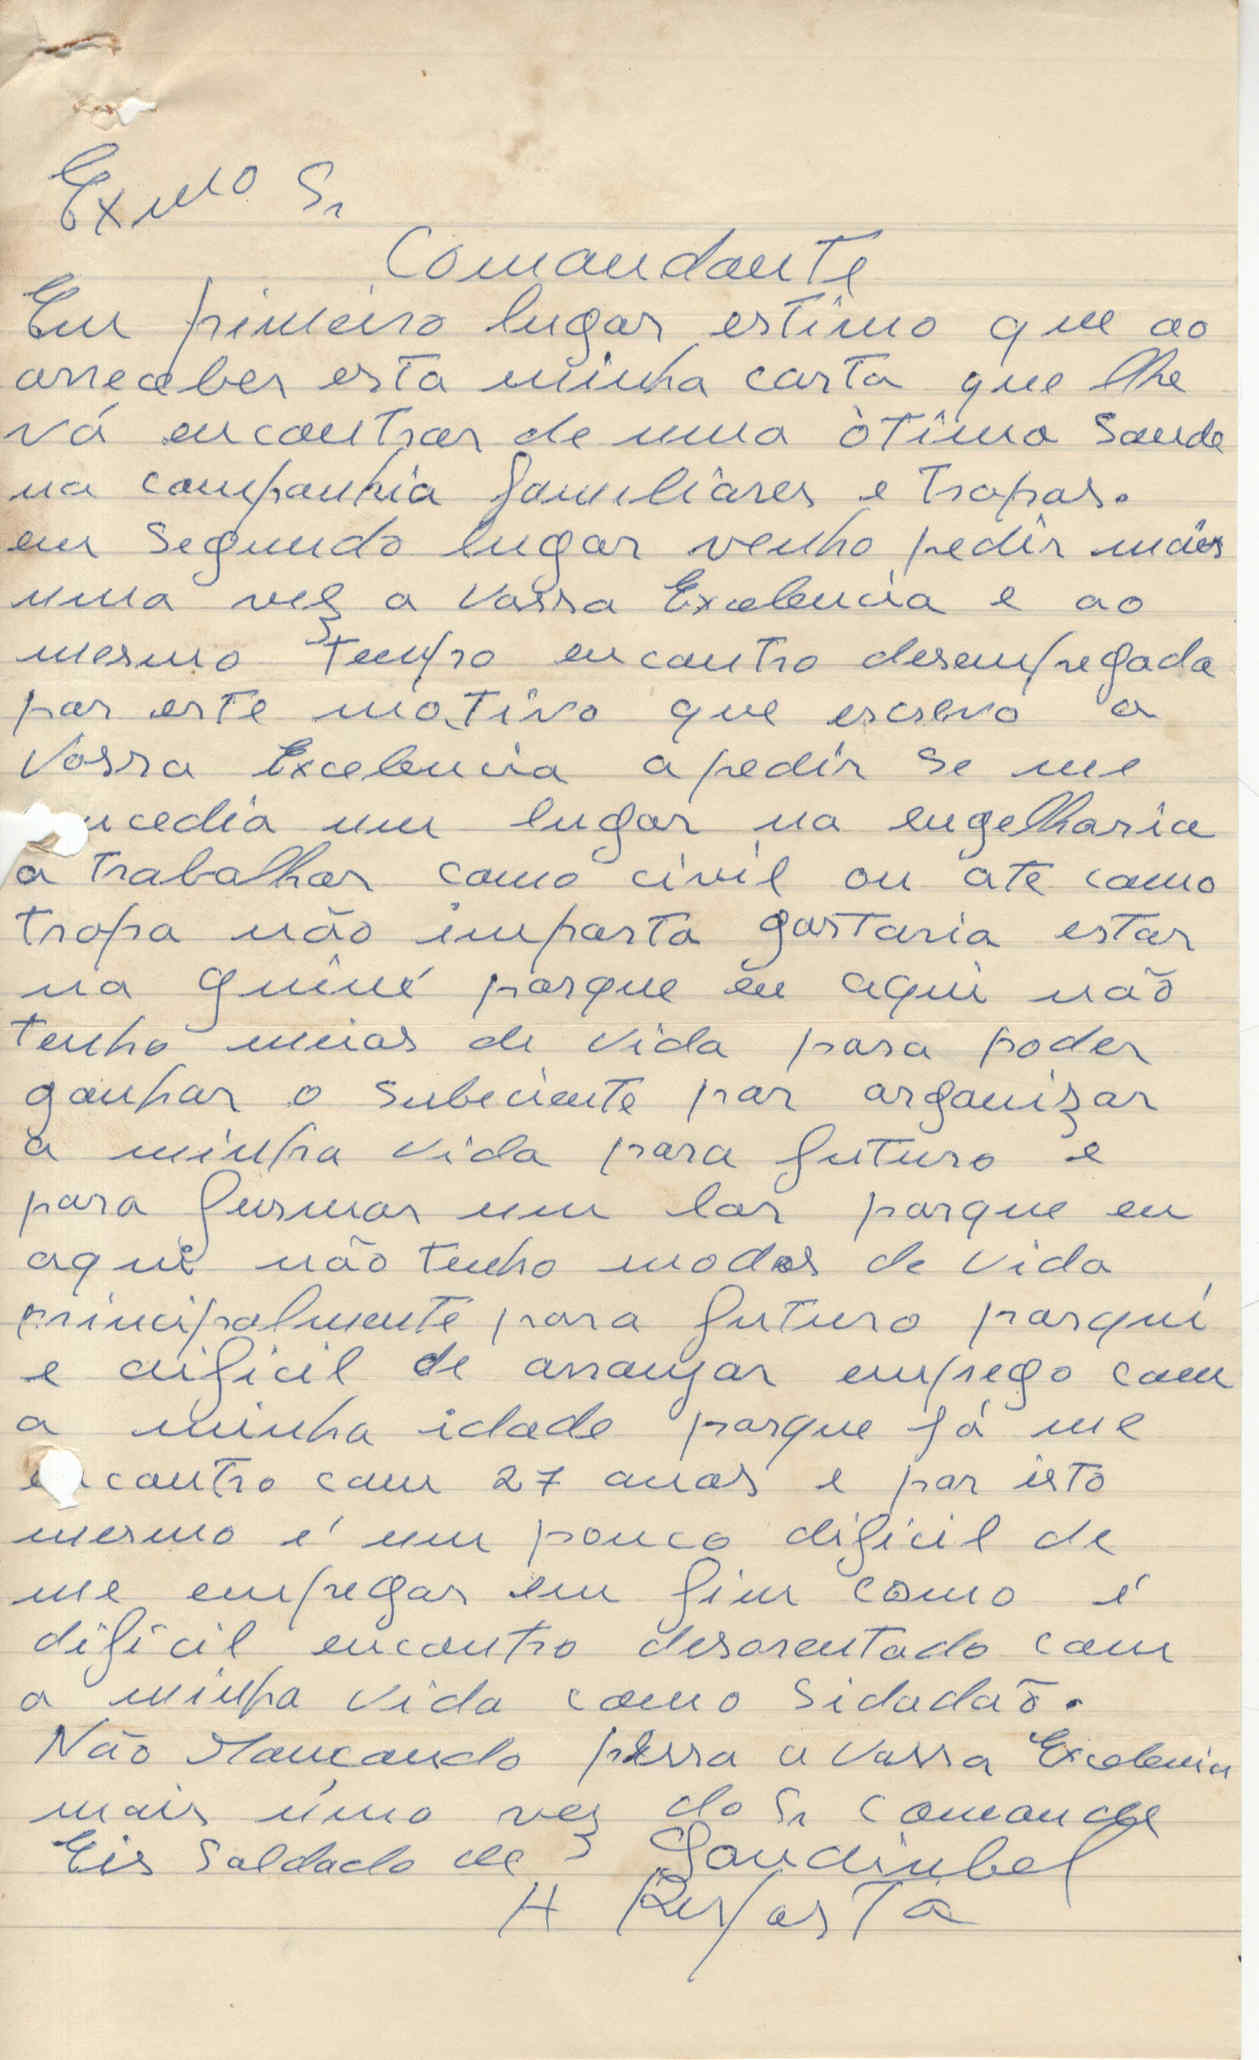 Exmo Sr
Comandante
Em pimeiro lugar estimo que ao
arreceber esta minha carta que lhe
vá encontrar de uma òtima Saude
na companhia familiares e Tropas.
em Segundo lugar venho pedir mais
uma vez a Vossa Excelencia e ao
mesmo tempo encontro desempregada
por este motivo que escrevo a
Vossa Excelencia a pedir se me
ncedia um lugar na engelharia
a Trabalhar como civil ou ate como
tropa não importa gostaria estar
na Guiné porque eu aqui não
tenho meios de vida para poder
ganhar o subeciente por organizar
a minha vida para futuro e
para furmar um lar porque eu
aqui não tenho modos de vida
principalmente para futuro porqui
e dificil de arranjar emprego com
a minha idade porque já me
encontro com 27 anos e por isto
mesmo é um pouco dificil de
me empregar em fim como é
dificil encontro desorentado com
a minha vida como Sidadão.
Não Mancando a Vossa Excelencia
mais uma vez do Sr Comande
Eis Soldado de Gandinbel
A Resposta